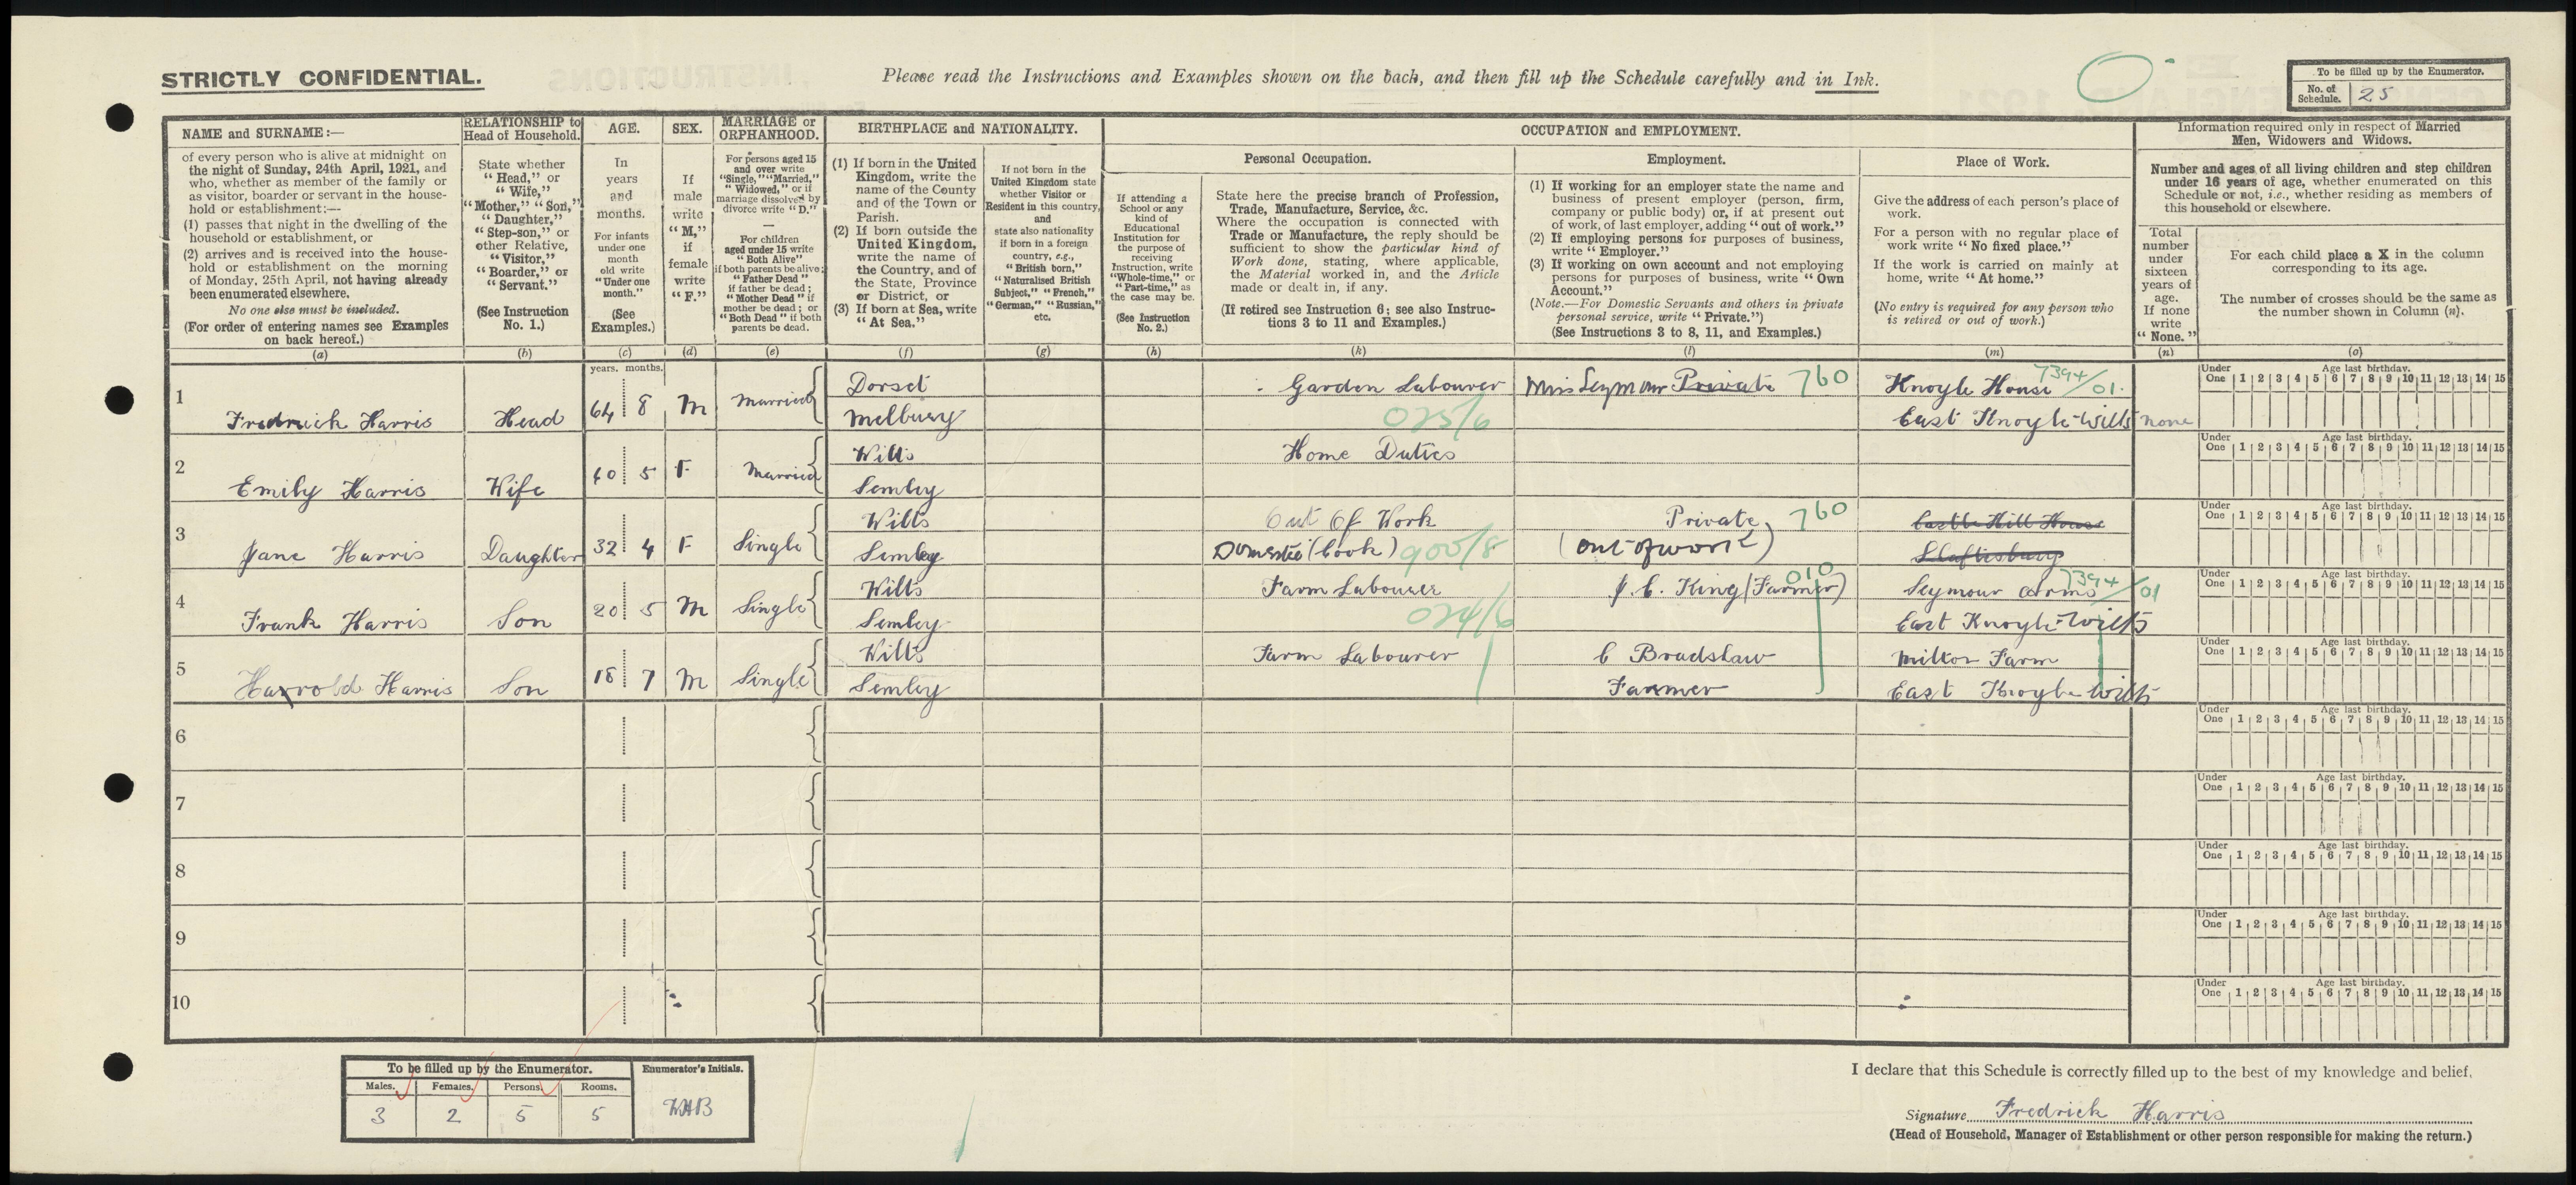 STRICTLY CONFIDENTIAL.
Please read the Instructions and Examples shown on the back, and then fill up the Schedule carefully and in Ink.
To be filled up by the Enumerator.
No. of Schedule. 25
NAME and SURNAME:—
of every person who is alive at midnight on
the night of Sunday, 24th April, 1921, and
who, whether as member of the family or
as visitor, boarder or servant in the house-
hold or establishment:—
(1) passes that night in the dwelling of the
household or establishment, or
(2) arrives and is received into the house-
hold or establishment on the morning
of Monday, 25th April, not having already
been enumerated elsewhere.
No one else must be included.
(For order of entering names see Examples
on back hereof.)
(a)
RELATIONSHIP to
Head of Household.
State whether
"Head," or
"Wife,"
"Mother," "Son,"
"Daughter,"
"Step-son," or
other Relative,
"Visitor,"
"Boarder," or
"Servant."
(See Instruction
No. 1.)
(b)
AGE.
In
years
and
months.
For infants
under one
month
old write
"Under one
month."
(See
Examples.)
(c)
years. months.
SEX.
If
male
write
"M,"
if
female
write
"F."
(d)
MARRIAGE or
ORPHANHOOD.
For persons aged 15
and over write
"Single," "Married,"
"Widowed," or if
marriage dissolved by
divorce write "D."
—
For children
aged under 15 write
"Both Alive"
if both parents be alive;
"Father Dead"
if father be dead;
"Mother Dead" if
mother be dead; or
"Both Dead" if both
parents be dead.
(e)
BIRTHPLACE and NATIONALITY.
(1) If born in the United
Kingdom, write the
name of the County
and of the Town or
Parish.
(2) If born outside the
United Kingdom,
write the name of
the Country, and of
the State, Province
or District, or
(3) If born at Sea, write
"At Sea."
(f)
If not born in the
United Kingdom state
whether Visitor or
Resident in this country,
and
state also nationality
if born in a foreign
country, e.g.,
"British born,"
"Naturalised British
Subject," "French,"
"German," "Russian,"
etc.
(g)
OCCUPATION and EMPLOYMENT.
If attending a
School or any
kind of
Educational
Institution for
the purpose of
receiving
Instruction, write
"Whole-time," or
"Part-time," as
the case may be.
(See Instruction
No. 2.)
(h)
Personal Occupation.
State here the precise branch of Profession,
Trade, Manufacture, Service, &c.
Where the occupation is connected with
Trade or Manufacture, the reply should be
sufficient to show the particular kind of
Work done, stating, where applicable,
the Material worked in, and the Article
made or dealt in, if any.
(If retired see Instruction 6; see also Instruc-
tions 3 to 11 and Examples.)
(k)
Employment.
(1) If working for an employer state the name and
business of present employer (person, firm,
company or public body) or, if at present out
of work, of last employer, adding "out of work."
(2) If employing persons for purposes of business,
write "Employer."
(3) If working on own account and not employing
persons for purposes of business, write "Own
Account."
(Note.—For Domestic Servants and others in private
personal service, write "Private.")
(See Instructions 3 to 8, 11, and Examples.)
(l)
Place of Work.
Give the address of each person's place of
work.
For a person with no regular place of
work write "No fixed place."
If the work is carried on mainly at
home, write "At home."
(No entry is required for any person who
is retired or out of work.)
(m)
Information required only in respect of Married
Men, Widowers and Widows.
Number and ages of all living children and step children
under 16 years of age, whether enumerated on this
Schedule or not, i.e., whether residing as members of
this household or elsewhere.
Total
number
under
sixteen
years of
age.
If none
write
"None."
(n)
For each child place a X in the column
corresponding to its age.
The number of crosses should be the same as
the number shown in Column (n).
(o)
1 Fredrick Harris Head 64 8 M Married Dorset Melbury Garden Labourer 025/6 Miss Seymour Private 760 Knoyle House 7394/01 East Knoyle Wilts none
Under One Age last birthday. 1 2 3 4 5 6 7 8 9 10 11 12 13 14 15
2 Emily Harris Wife 60 5 F Married Wilts Semley Home Duties
Under One Age last birthday. 1 2 3 4 5 6 7 8 9 10 11 12 13 14 15
3 Jane Harris Daughter 32 4 F Single Wilts Semley Out Of Work Domestic (Cook) 900/8 Private, 760 (out of work) Castle Hill House Shaftesbury
Under One Age last birthday. 1 2 3 4 5 6 7 8 9 10 11 12 13 14 15
4 Frank Harris Son 20 5 M Single Wilts Semley Farm Labourer 024/6 J. C. King (Farmer) 010 Seymour Arms 7394/01 East Knoyle Wilts
Under One Age last birthday. 1 2 3 4 5 6 7 8 9 10 11 12 13 14 15
5 Harrold Harris Son 18 7 M Single Wilts Semley Farm Labourer C Bradshaw Farmer Milton Farm East Knoyle Wilts
Under One Age last birthday. 1 2 3 4 5 6 7 8 9 10 11 12 13 14 15
6
Under One Age last birthday. 1 2 3 4 5 6 7 8 9 10 11 12 13 14 15
7
Under One Age last birthday. 1 2 3 4 5 6 7 8 9 10 11 12 13 14 15
8
Under One Age last birthday. 1 2 3 4 5 6 7 8 9 10 11 12 13 14 15
9
Under One Age last birthday. 1 2 3 4 5 6 7 8 9 10 11 12 13 14 15
10
Under One Age last birthday. 1 2 3 4 5 6 7 8 9 10 11 12 13 14 15
To be filled up by the Enumerator.
Males. Females. Persons. Rooms.
3 2 5 5
Enumerator's Initials.
I declare that this Schedule is correctly filled up to the best of my knowledge and belief.
Signature Fredrick Harris
(Head of Household, Manager of Establishment or other person responsible for making the return.)